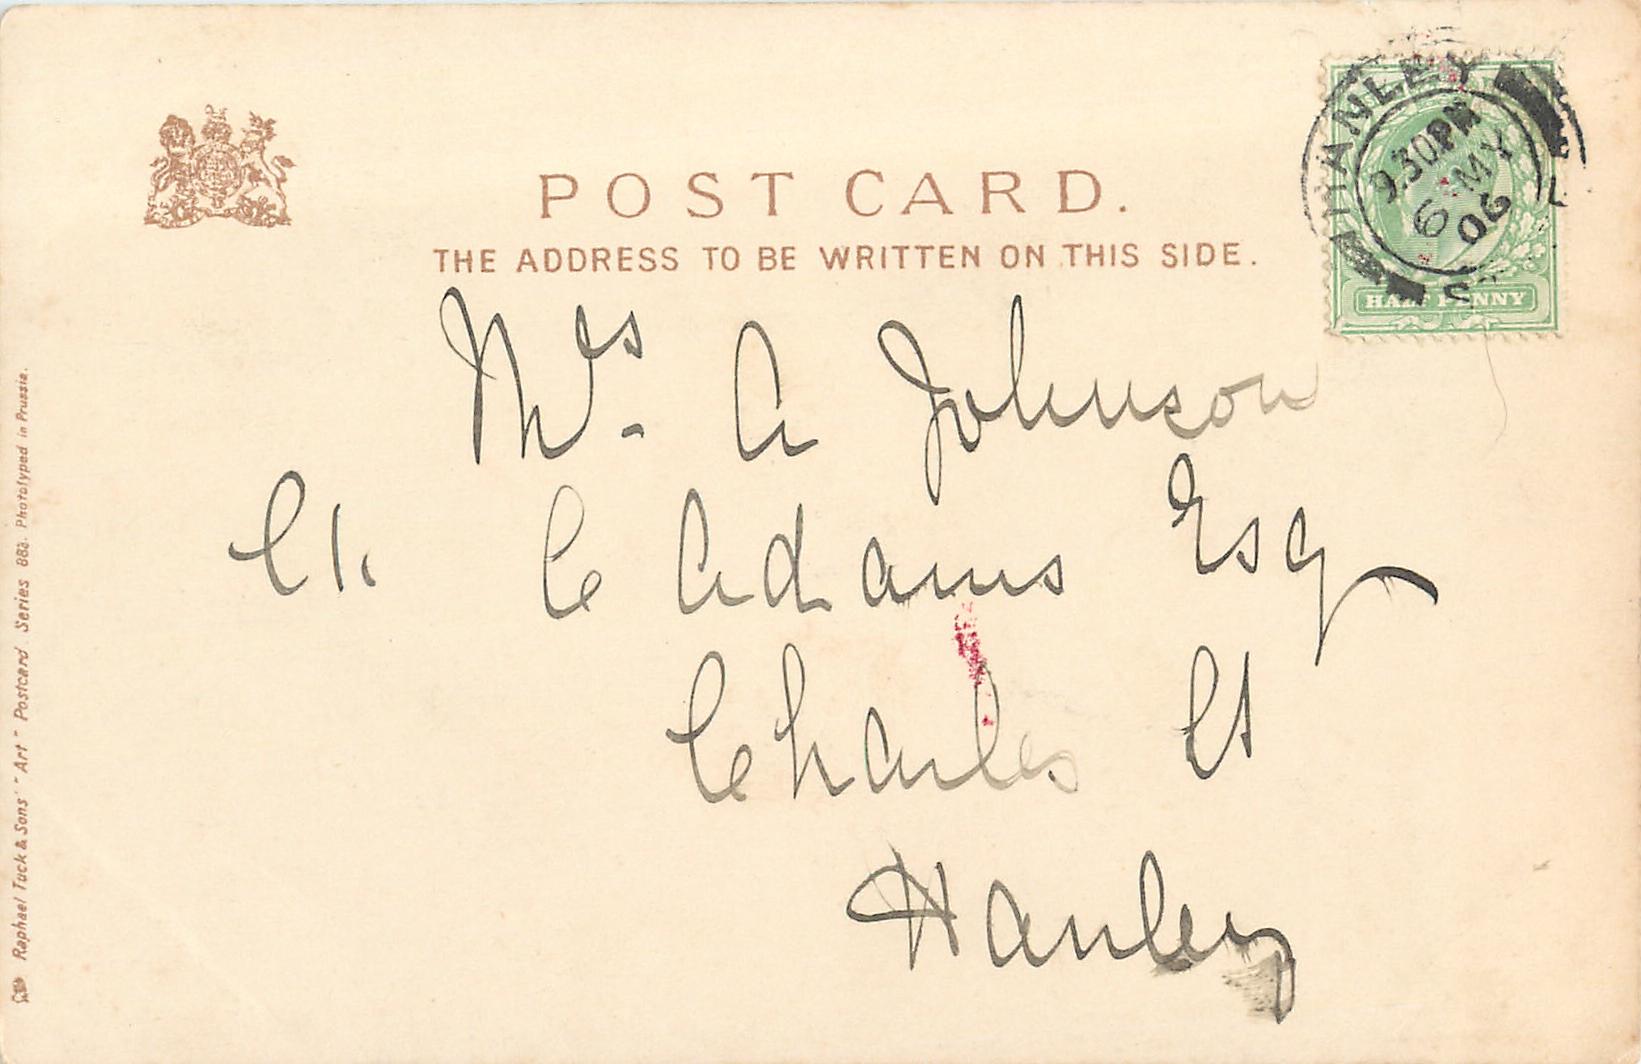 POST CARD.
THE ADDRESS TO BE WRITTEN ON THIS SIDE.
HANLEY
9.30PM
6 MY
06
HALF PENNY
Mrs. A Johnson
C Adams Esq
Charles St
Hanley
Raphael Tuck & Sons' "Art" Postcard Series Phototyped in Prussia.